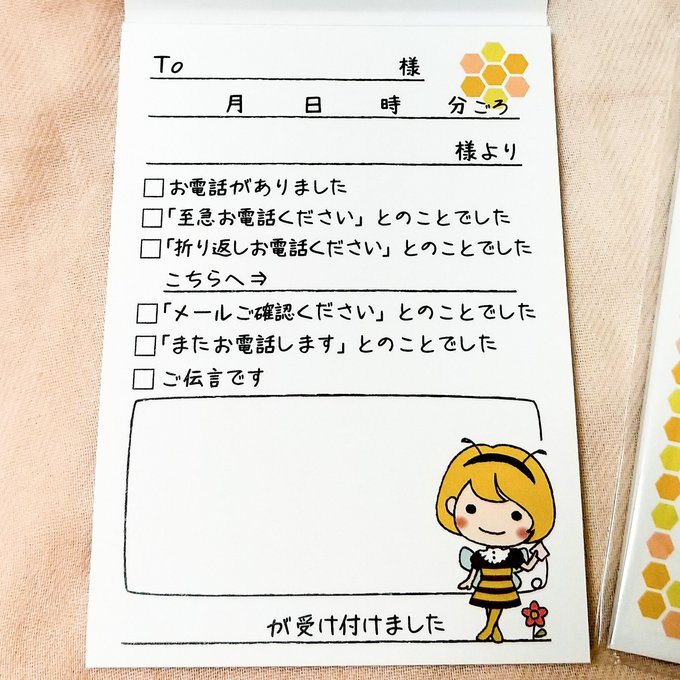 To 様
月 日 時 分ごろ
様より
お電話がありました
「至急お電話ください」とのことでした
「折り返しお電話ください」とのことでした
こちらへ⇒
「メールご確認ください」とのことでした
「またお電話します」とのことでした
ご伝言です
が受け付けました